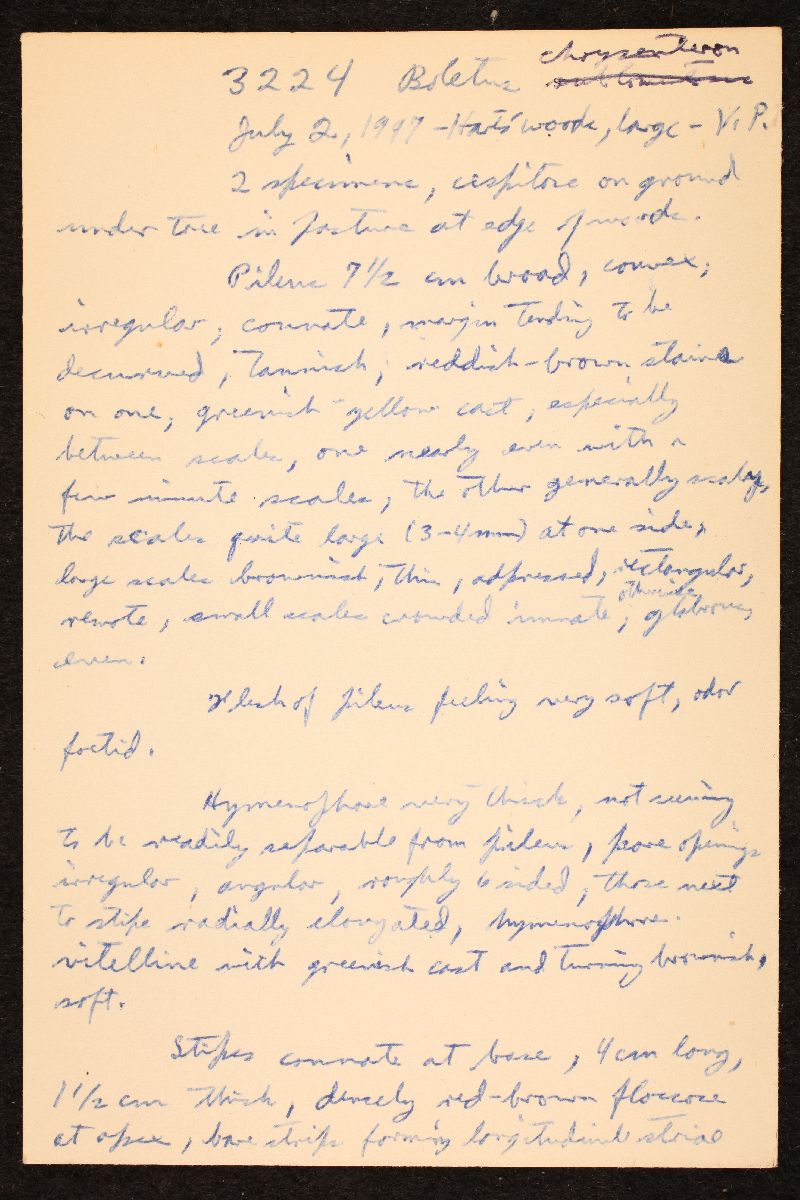 chrysenteron
3224 Boletus subtomentosus
July 2, 1947 - Hart's woods, large - V. P.
2 specimens, cespitose on ground
under tree in pasture at edge of woods.
Pileus 7 1/2 cm broad, convex,
irregular, connate, margin tending to be
decurved, tannish, reddish-brown stains
on one, greenish-yellow cast, especially
between scales, one nearly even with a
few minute scales, the other generally scaly,
the scales quite large (3-4mm) at one side,
large scales brownish, thin, adpressed, rectangular,
otherwise
remote, small scales crowded innate, glabrous,
even.
Flesh of pileus feeling very soft, odor
foetid.
Hymenophore very thick, not seeming
to be readily separable from pileus, pore openings
irregular, angular, roughly 6 sided, those next
to stipe radially elongated, hymenophore
vitelline with greenish cast and turning brownish,
soft.
Stipes connate at base, 4 cm long,
1 1/2 cm thick, densely red-brown floccose
at apex, bare strips forming longitudinal striae